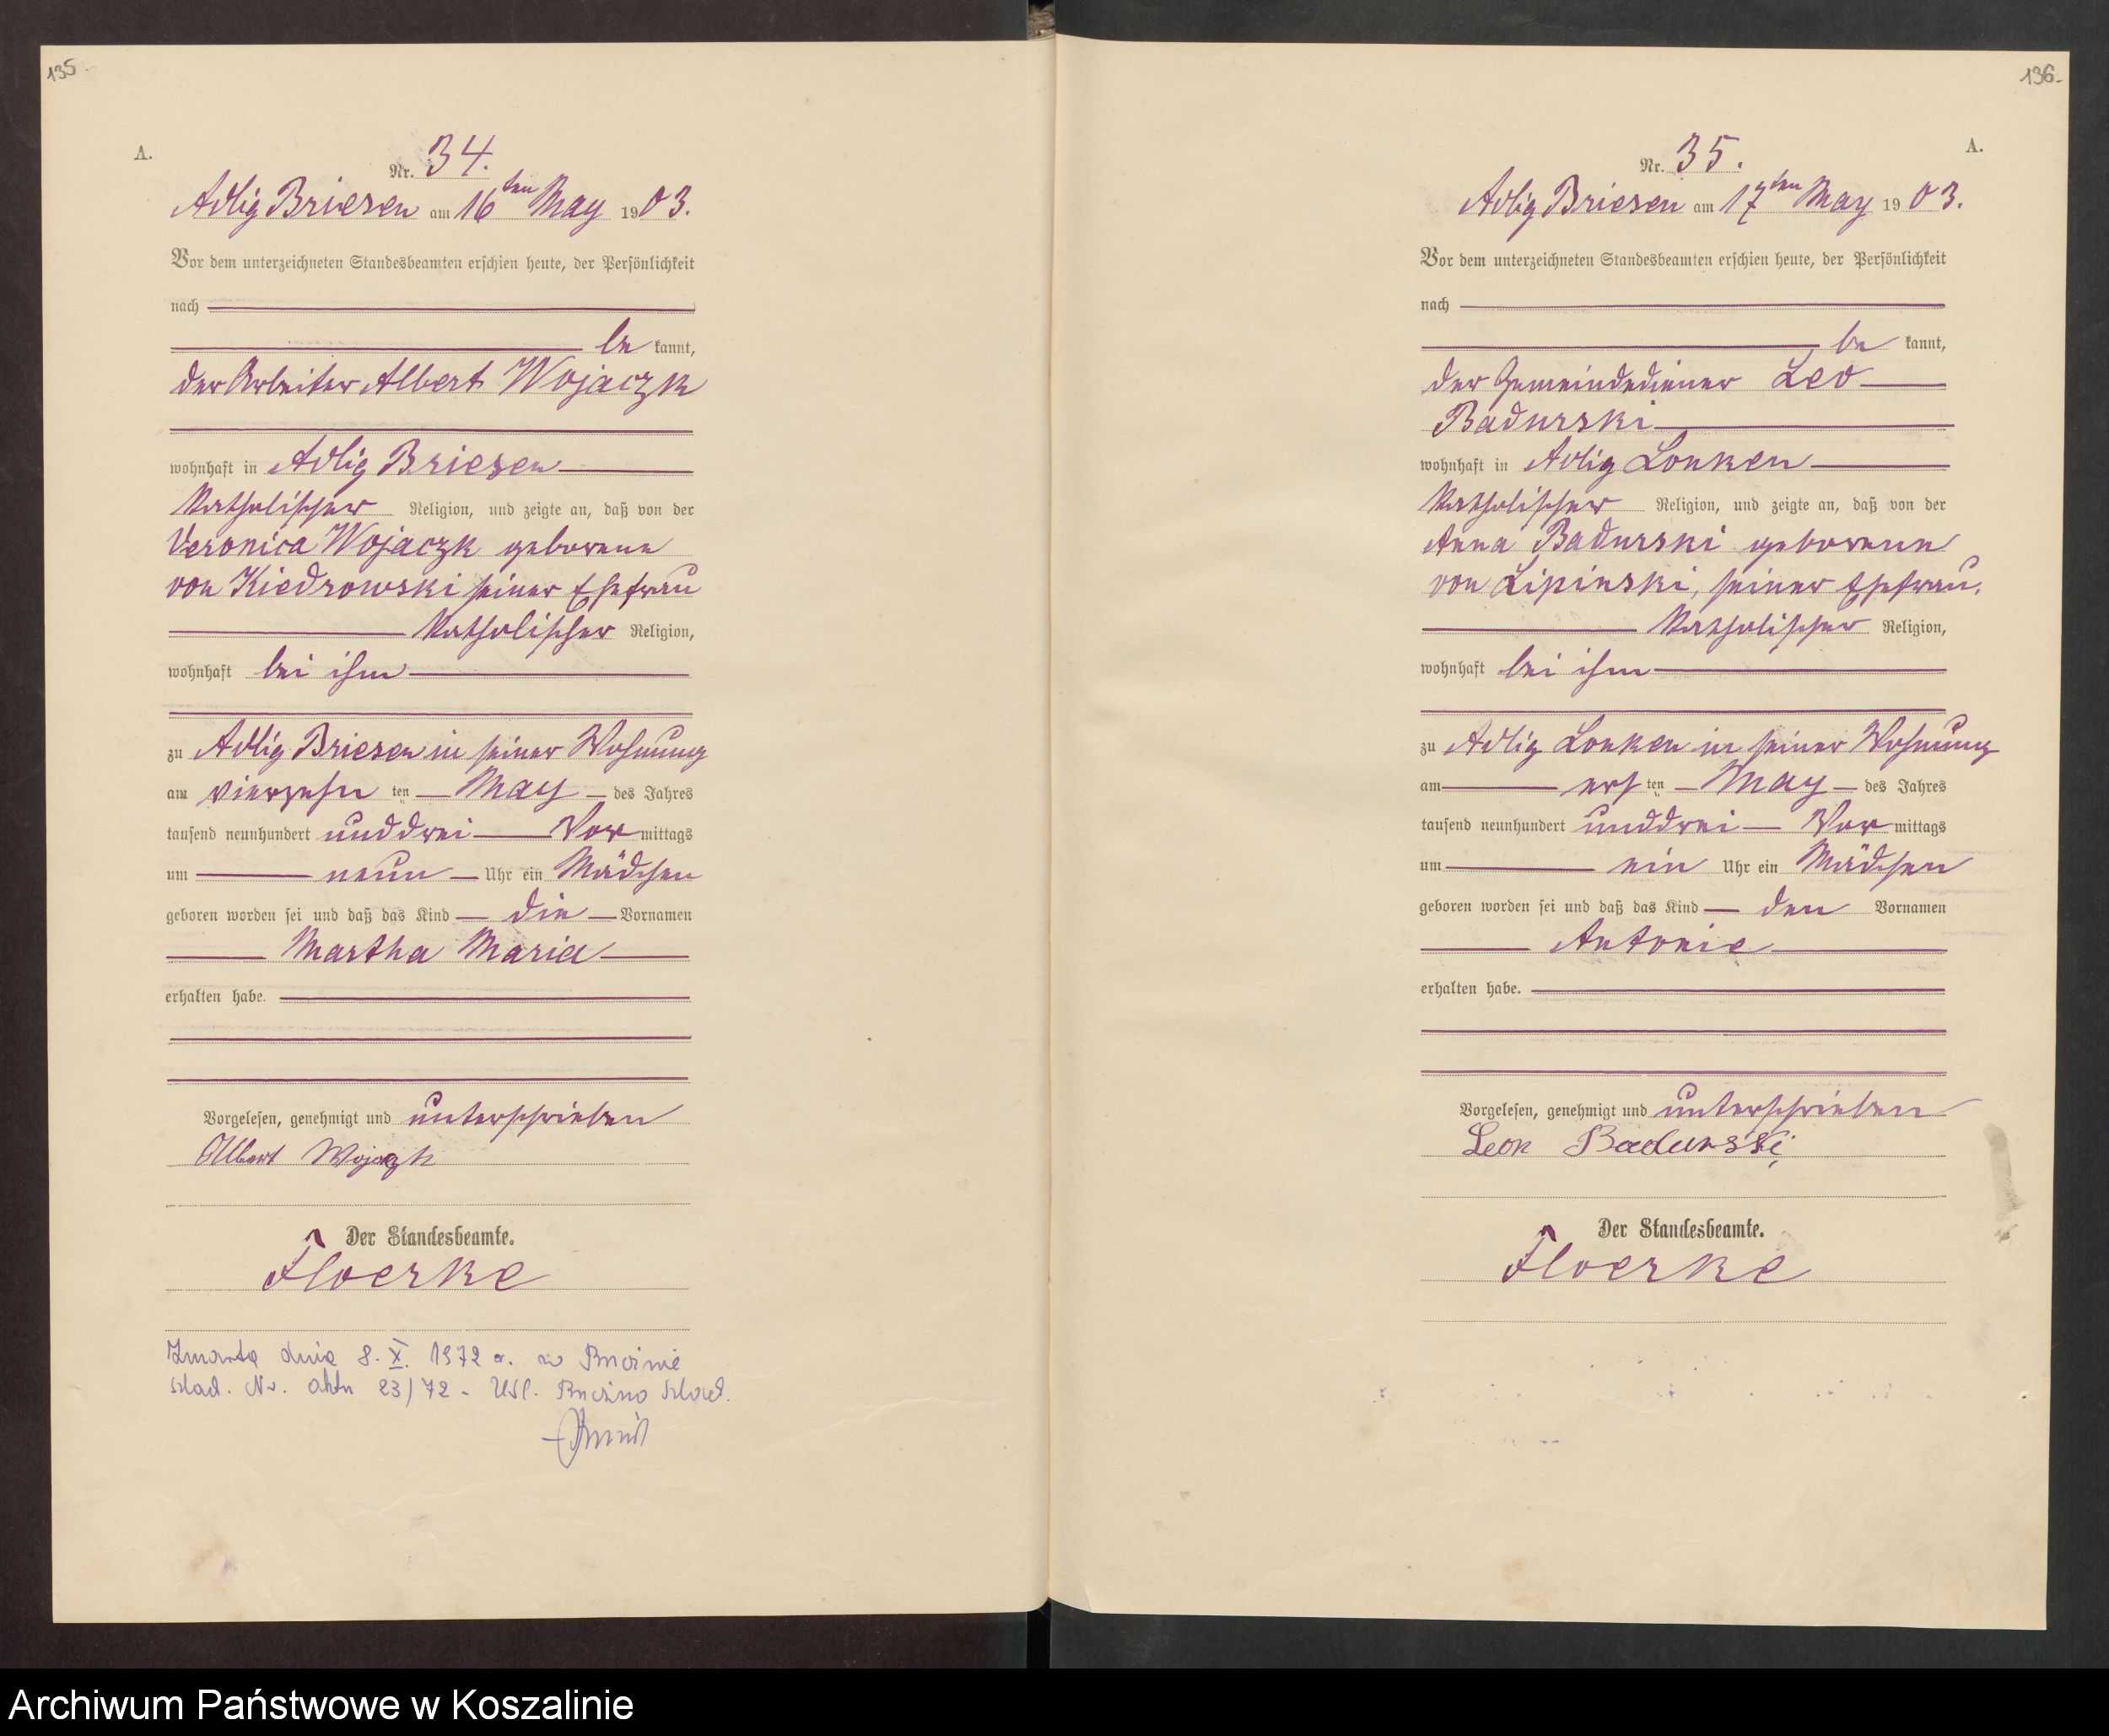 135.
A.
Nr. 34.
Adlig Briesen am 16ten May 1903.
Vor dem unterzeichneten Standesbeamten erschien heute, der Persönlichkeit
nach
be kannt,
der Arbeiter Albert Wojaczk
wohnhaft in Adlig Briesen
katholischer Religion, und zeigte an, daß von der
Veronica Wojaczk geborene
von Kiedrowski seiner Ehefrau
katholischer Religion,
wohnhaft bei ihm
zu Adlig Briesen in seiner Wohnung
am vierzehn ten May des Jahres
tausend neunhundert unddrei Vor mittags
um neun Uhr ein Mädchen
geboren worden sei und daß das Kind die Vornamen
Martha Maria
erhalten habe.
Vorgelesen, genehmigt und unterschrieben
Albert Wojazk
Der Standesbeamte.
Floerke
Zmarła dnia 8. X. 1972 r. w
Nr. aktu 23/72 - USC.
136.
A.
Nr. 35.
Adlig Briesen am 17ten May 1903.
Vor dem unterzeichneten Standesbeamten erschien heute, der Persönlichkeit
nach
be kannt,
der Gemeindediener Leo
Badurski
wohnhaft in Adlig Lonken
katholischer Religion, und zeigte an, daß von der
Anna Badurski geborene
von Lipinski, seiner Ehefrau,
katholischer Religion,
wohnhaft bei ihm
zu Adlig Lonken in seiner Wohnung
am ers ten May des Jahres
tausend neunhundert unddrei Vor mittags
um ein Uhr ein Mädchen
geboren worden sei und daß das Kind den Vornamen
Antonie
erhalten habe.
Vorgelesen, genehmigt und unterschrieben
Leon Badurski
Der Standesbeamte.
Floerke
Archiwum Państwowe w Koszalinie